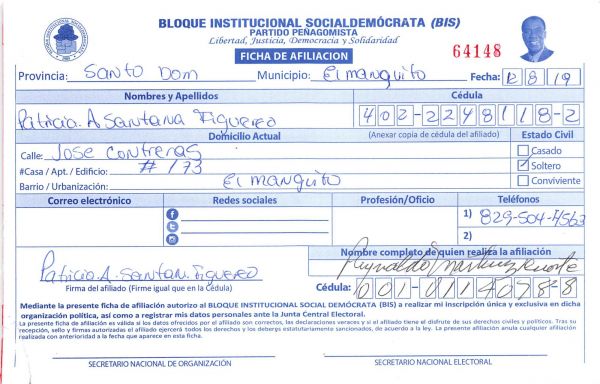 BLOQUE INSTITUCIONAL SOCIALDEMÓCRATA (BIS)
PARTIDO PEÑAGOMISTA
Libertad, Justicia, Democracia y Solidaridad
FICHA DE AFILIACION
64148
Provincia: Santo Dom Municipio: El manguito Fecha: 12 8 19
Nombres y Apellidos Cédula
Patricia. A Santana Figuereo 402-2248118-2
Domicilio Actual (Anexar copia de cédula del afiliado) Estado Civil
Calle: Jose Contreras Casado
#Casa / Apt. / Edificio: # 173 Soltero
Barrio / Urbanización: El manguito Conviviente
Correo electrónico Redes sociales Profesión/Oficio Teléfonos
1) 829-504-4563
2)
Nombre completo de quien realiza la afiliación
Patricia. A. Santan. Figuereo Reynaldo Martinez
Firma del afiliado (Firme igual que en la Cédula) Cédula: 001-01140782-8
Mediante la presente ficha de afiliación autorizo al BLOQUE INSTITUCIONAL SOCIAL DEMÓCRATA (BIS) a realizar mi inscripción única y exclusiva en dicha
organización política, así como a registrar mis datos personales ante la Junta Central Electoral.
La presente ficha de afiliación es válida si los datos ofrecidos por el afiliado son correctos, las declaraciones veraces y si el afiliado tiene el disfrute de sus derechos civiles y políticos. Tras su
recepción, sello y firmas autorizadas el afiliado ejercerá todos los derechos y los deberes estatutariamente sancionados, de acuerdo a la ley. La presente afiliación anula cualquier afiliación
realizada con anterioridad a la fecha que aparece en esta ficha.
SECRETARIO NACIONAL DE ORGANIZACIÓN SECRETARIO NACIONAL ELECTORAL